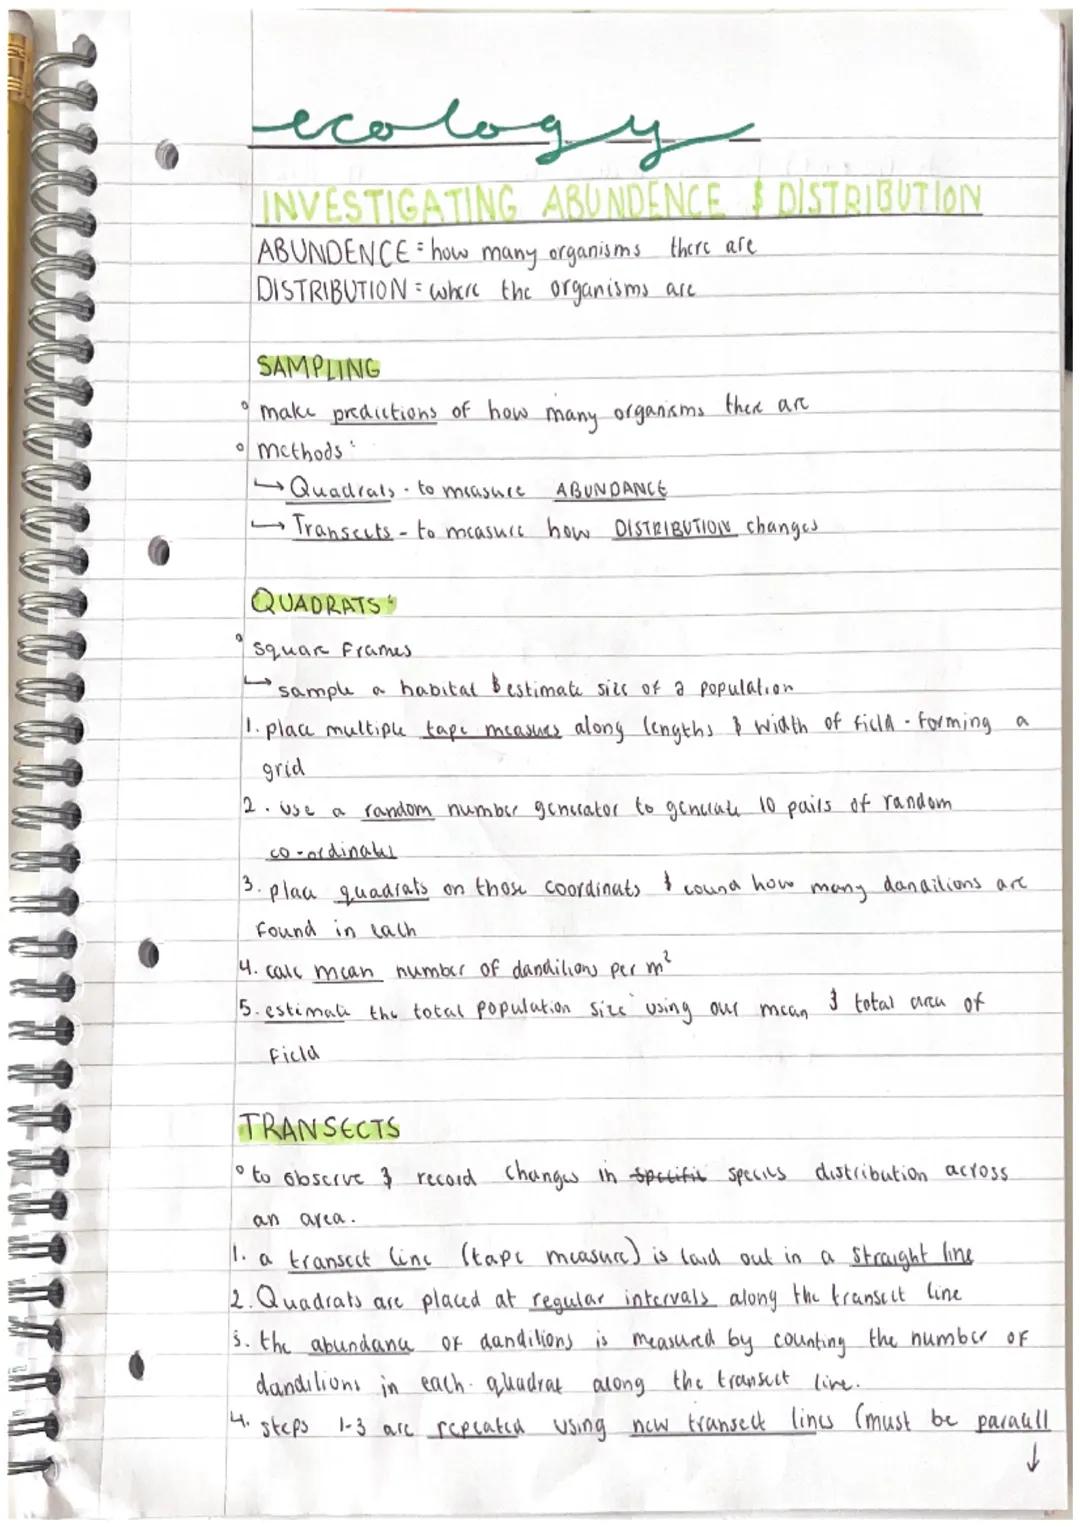 ecology
INVESTIGATING ABUNDENCE & DISTRIBUTION
ABUNDENCE = how many organisms there are
DISTRIBUTION = where the organisms are
SAMPLING
° make predictions of how many organisms there are
° methods:
→ Quadrats - to measure ABUNDANCE
→ Transects - to measure how DISTRIBUTION changes
QUADRATS:
° square frames
→ sample a habitat & estimate size of a population
1. place multiple tape measures along lengths & width of field - forming a
grid
2. use a random number generator to generate 10 pairs of random
co-ordinates
3. place quadrats on those coordinats & count how many dandilions are
found in each
4. calc mean number of dandilions per m²
5. estimate the total population size using our mean & total area of
field
TRANSECTS
° to observe & record changes in specific species distribution across
an area.
1. a transect line (tape measure) is laid out in a straight line
2. Quadrats are placed at regular intervals along the transect line
3. the abundance of dandilions is measured by counting the number of
dandilions in each quadrat along the transect line.
4. steps 1-3 are repeated using new transect lines (must be parallell
↓